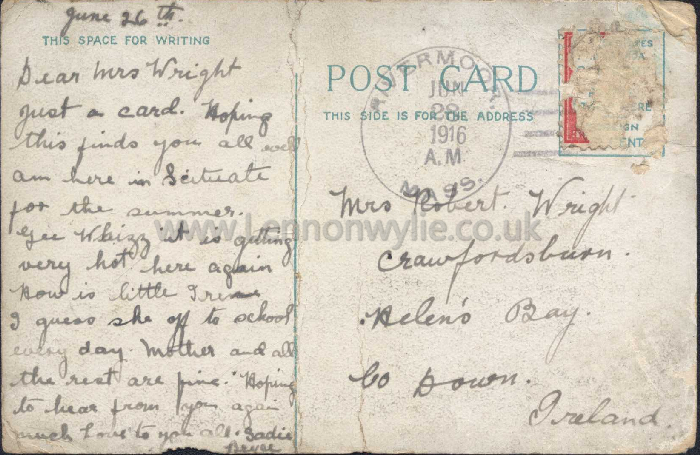 June 26th.
THIS SPACE FOR WRITING
Dear Mrs Wright
just a card. Hoping
this finds you all well
am here in Scituate
for the summer.
Gee Whizz it is getting
very hot here again
How is little Irene
I guess she off to school
every day. Mother and all
the rest are fine. Hoping
to hear from you again
much Love to you all. Sadie
POST CARD
THIS SIDE IS FOR THE ADDRESS
JUN
28
1916
A.M.
MASS.
Mrs Robert. Wright
Crawfordsburn.
Helen's Bay.
Co Down.
Ireland.
www.Lennonwylie.co.uk